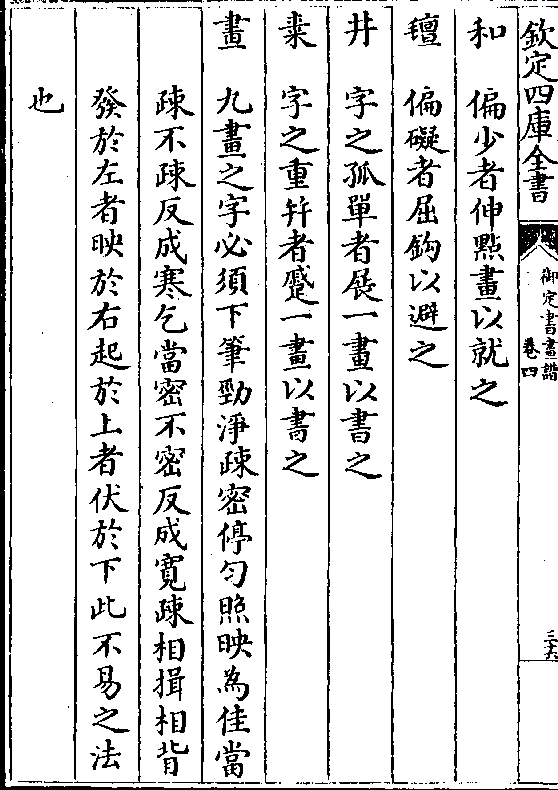 欽定四庫全書
御定書畫譜
卷四
三六
和 偏少者伸點畫以就之
氊 偏礙者屈鈎以避之
井 字之孤單者展一畫以書之
桒 字之重幷者蹙一畫以書之
畫 九畫之字必須下筆勁淨疎密停匀照映為佳當
疎不疎反成寒乞當密不密反成寛疎相揖相背
發於左者映於右起於上者伏於下此不易之法
也